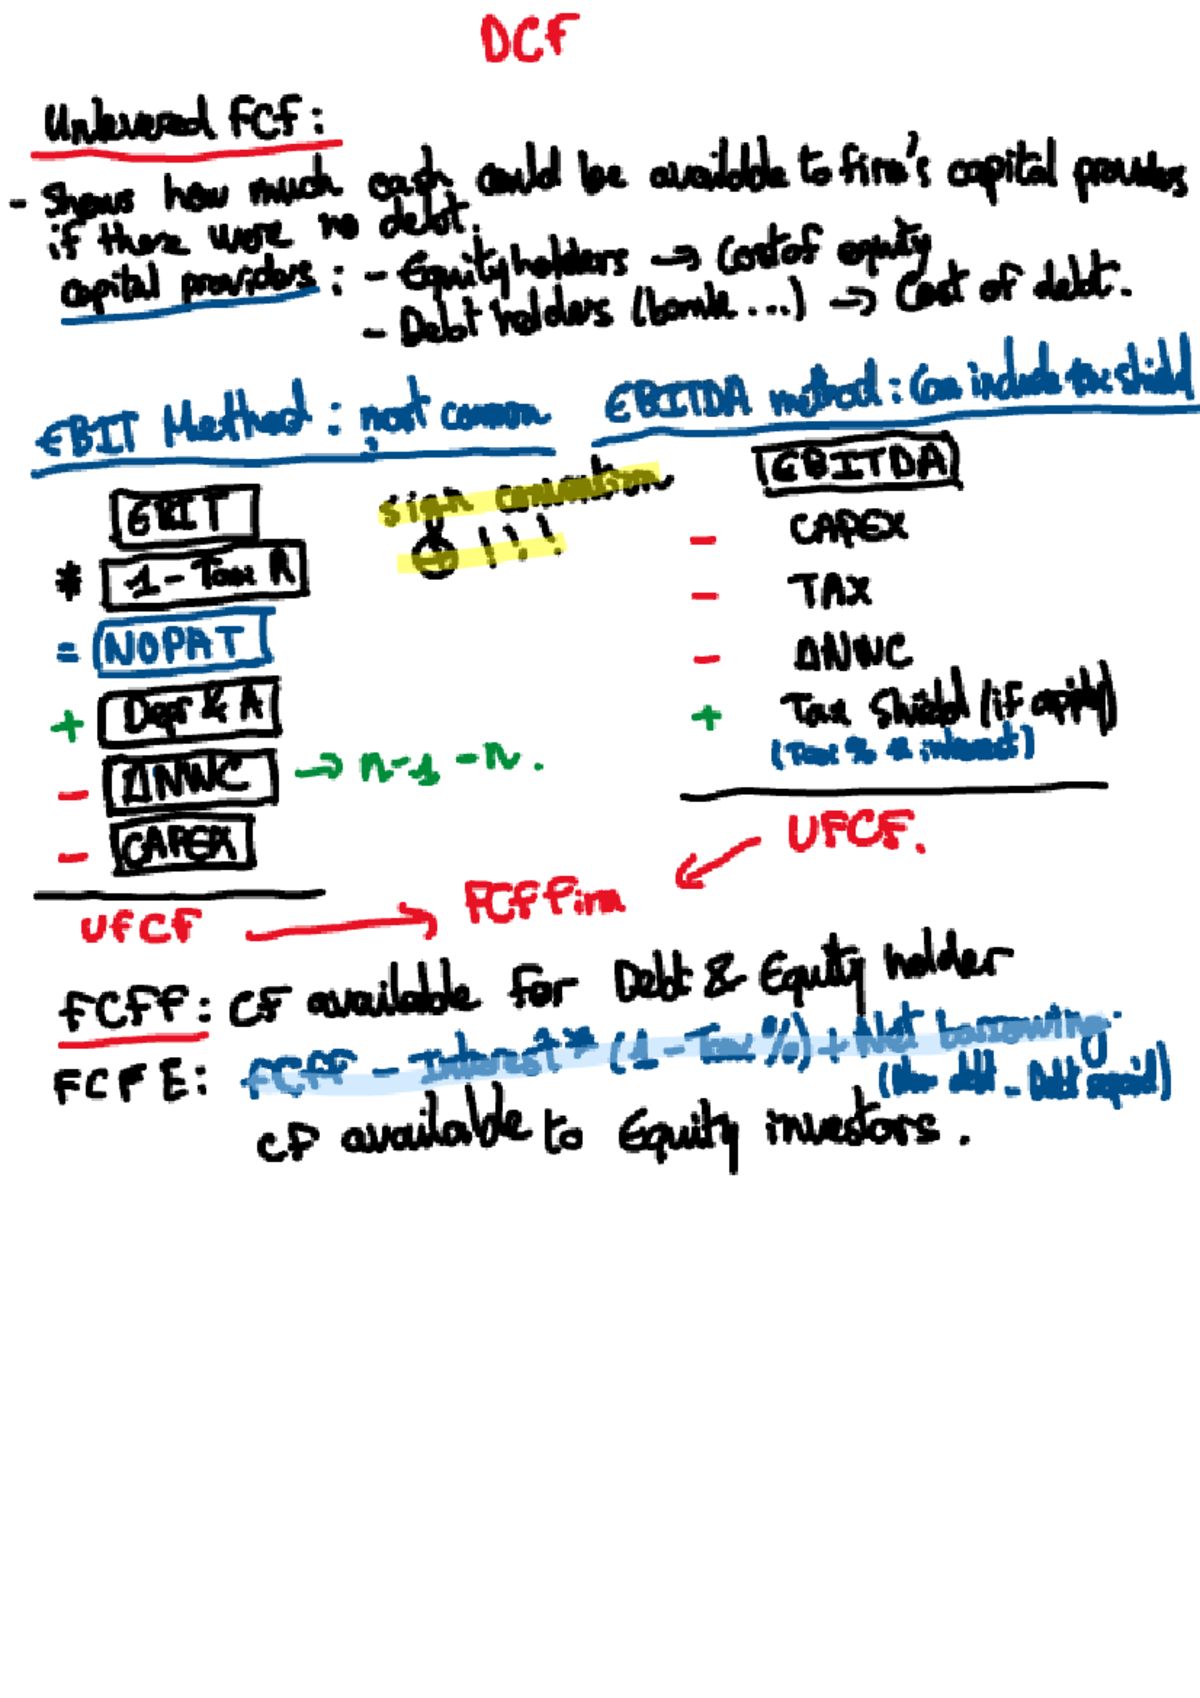 DCF
Unlevered FCF:
- Shows how much cash could be available to firm's capital providers
if there were no debt.
capital providers : - Equity holders → Cost of equity
- Debt holders (bank ...) → Cost of debt.
EBIT Method : most common
EBITDA method : Can include tax shield
sign convention
+ ! ! !
EBIT
* 1 - Tax R
= NOPAT
+ Depr & A
- ΔNWC → n-1 - n .
- CAPEX
UFCF → FCF Firm
EBITDA
- CAPEX
- TAX
- ΔNWC
+ Tax Shield (if apply)
(Tax % * interest)
UFCF.
FCFF: CF available for Debt & Equity holder
FCFE: FCFF - Interest * (1 - Tax %) + Net borrowing.
(New debt - Debt repaid)
CF available to Equity investors .